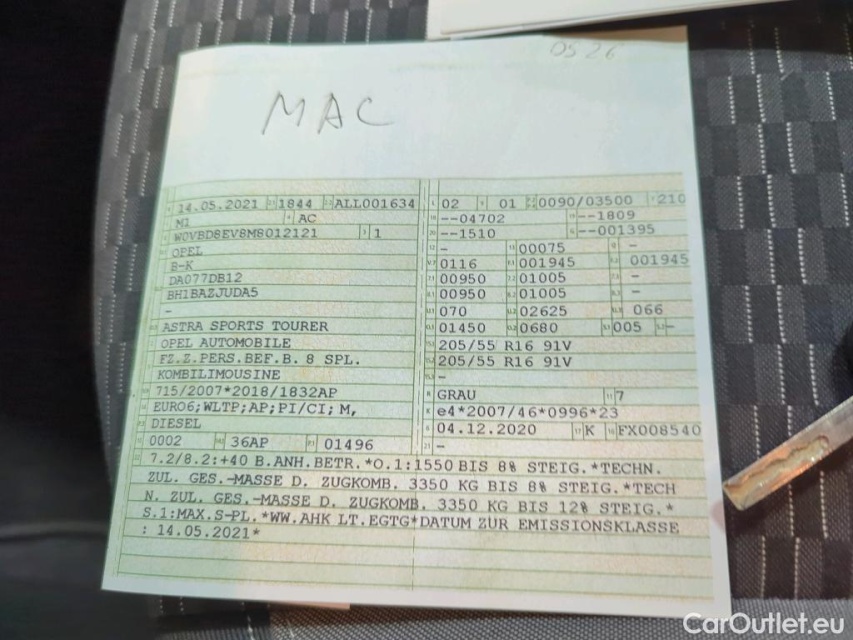 0526
MAC
14.05.2021 1844 ALL001634 02 01 0090/03500 210
M1 AC --04702 --1809
W0VBD8EV8M8012121 1 --1510 --001395
OPEL - 00075 -
B-K 0116 001945 001945
DA077DB12 00950 01005 -
BH1BAZJUDA5 00950 01005 -
- 070 02625 066
ASTRA SPORTS TOURER 01450 0680 005 -
OPEL AUTOMOBILE 205/55 R16 91V
FZ.Z.PERS.BEF.B. 8 SPL. 205/55 R16 91V
KOMBILIMOUSINE -
715/2007*2018/1832AP GRAU 7
EURO6;WLTP;AP;PI/CI; M, e4*2007/46*0996*23
DIESEL 04.12.2020 K FX008540
0002 36AP 01496 -
7.2/8.2:+40 B.ANH.BETR.*O.1:1550 BIS 8% STEIG.*TECHN.
ZUL. GES.-MASSE D. ZUGKOMB. 3350 KG BIS 8% STEIG.*TECH
N. ZUL. GES.-MASSE D. ZUGKOMB. 3350 KG BIS 12% STEIG.*
S.1:MAX.S-PL.*WW.AHK LT.EGTG*DATUM ZUR EMISSIONSKLASSE
: 14.05.2021*
CarOutlet.eu